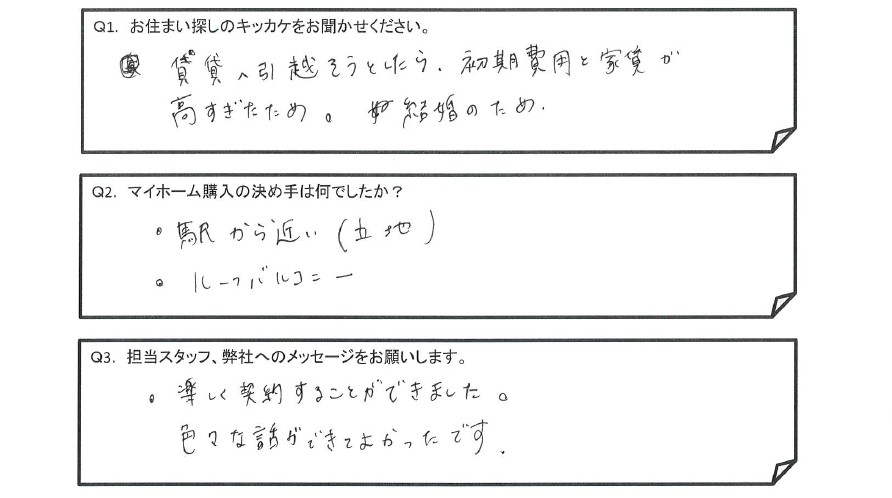 Q1. お住まい探しのキッカケをお聞かせください。
賃貸へ引越そうとしたら、初期費用と家賃が
高すぎたため。結婚のため.
Q2. マイホーム購入の決め手は何でしたか？
・駅から近い(立地)
・ルーフバルコニー
Q3. 担当スタッフ、弊社へのメッセージをお願いします。
・楽しく契約することができました。
色々な話ができてよかったです.